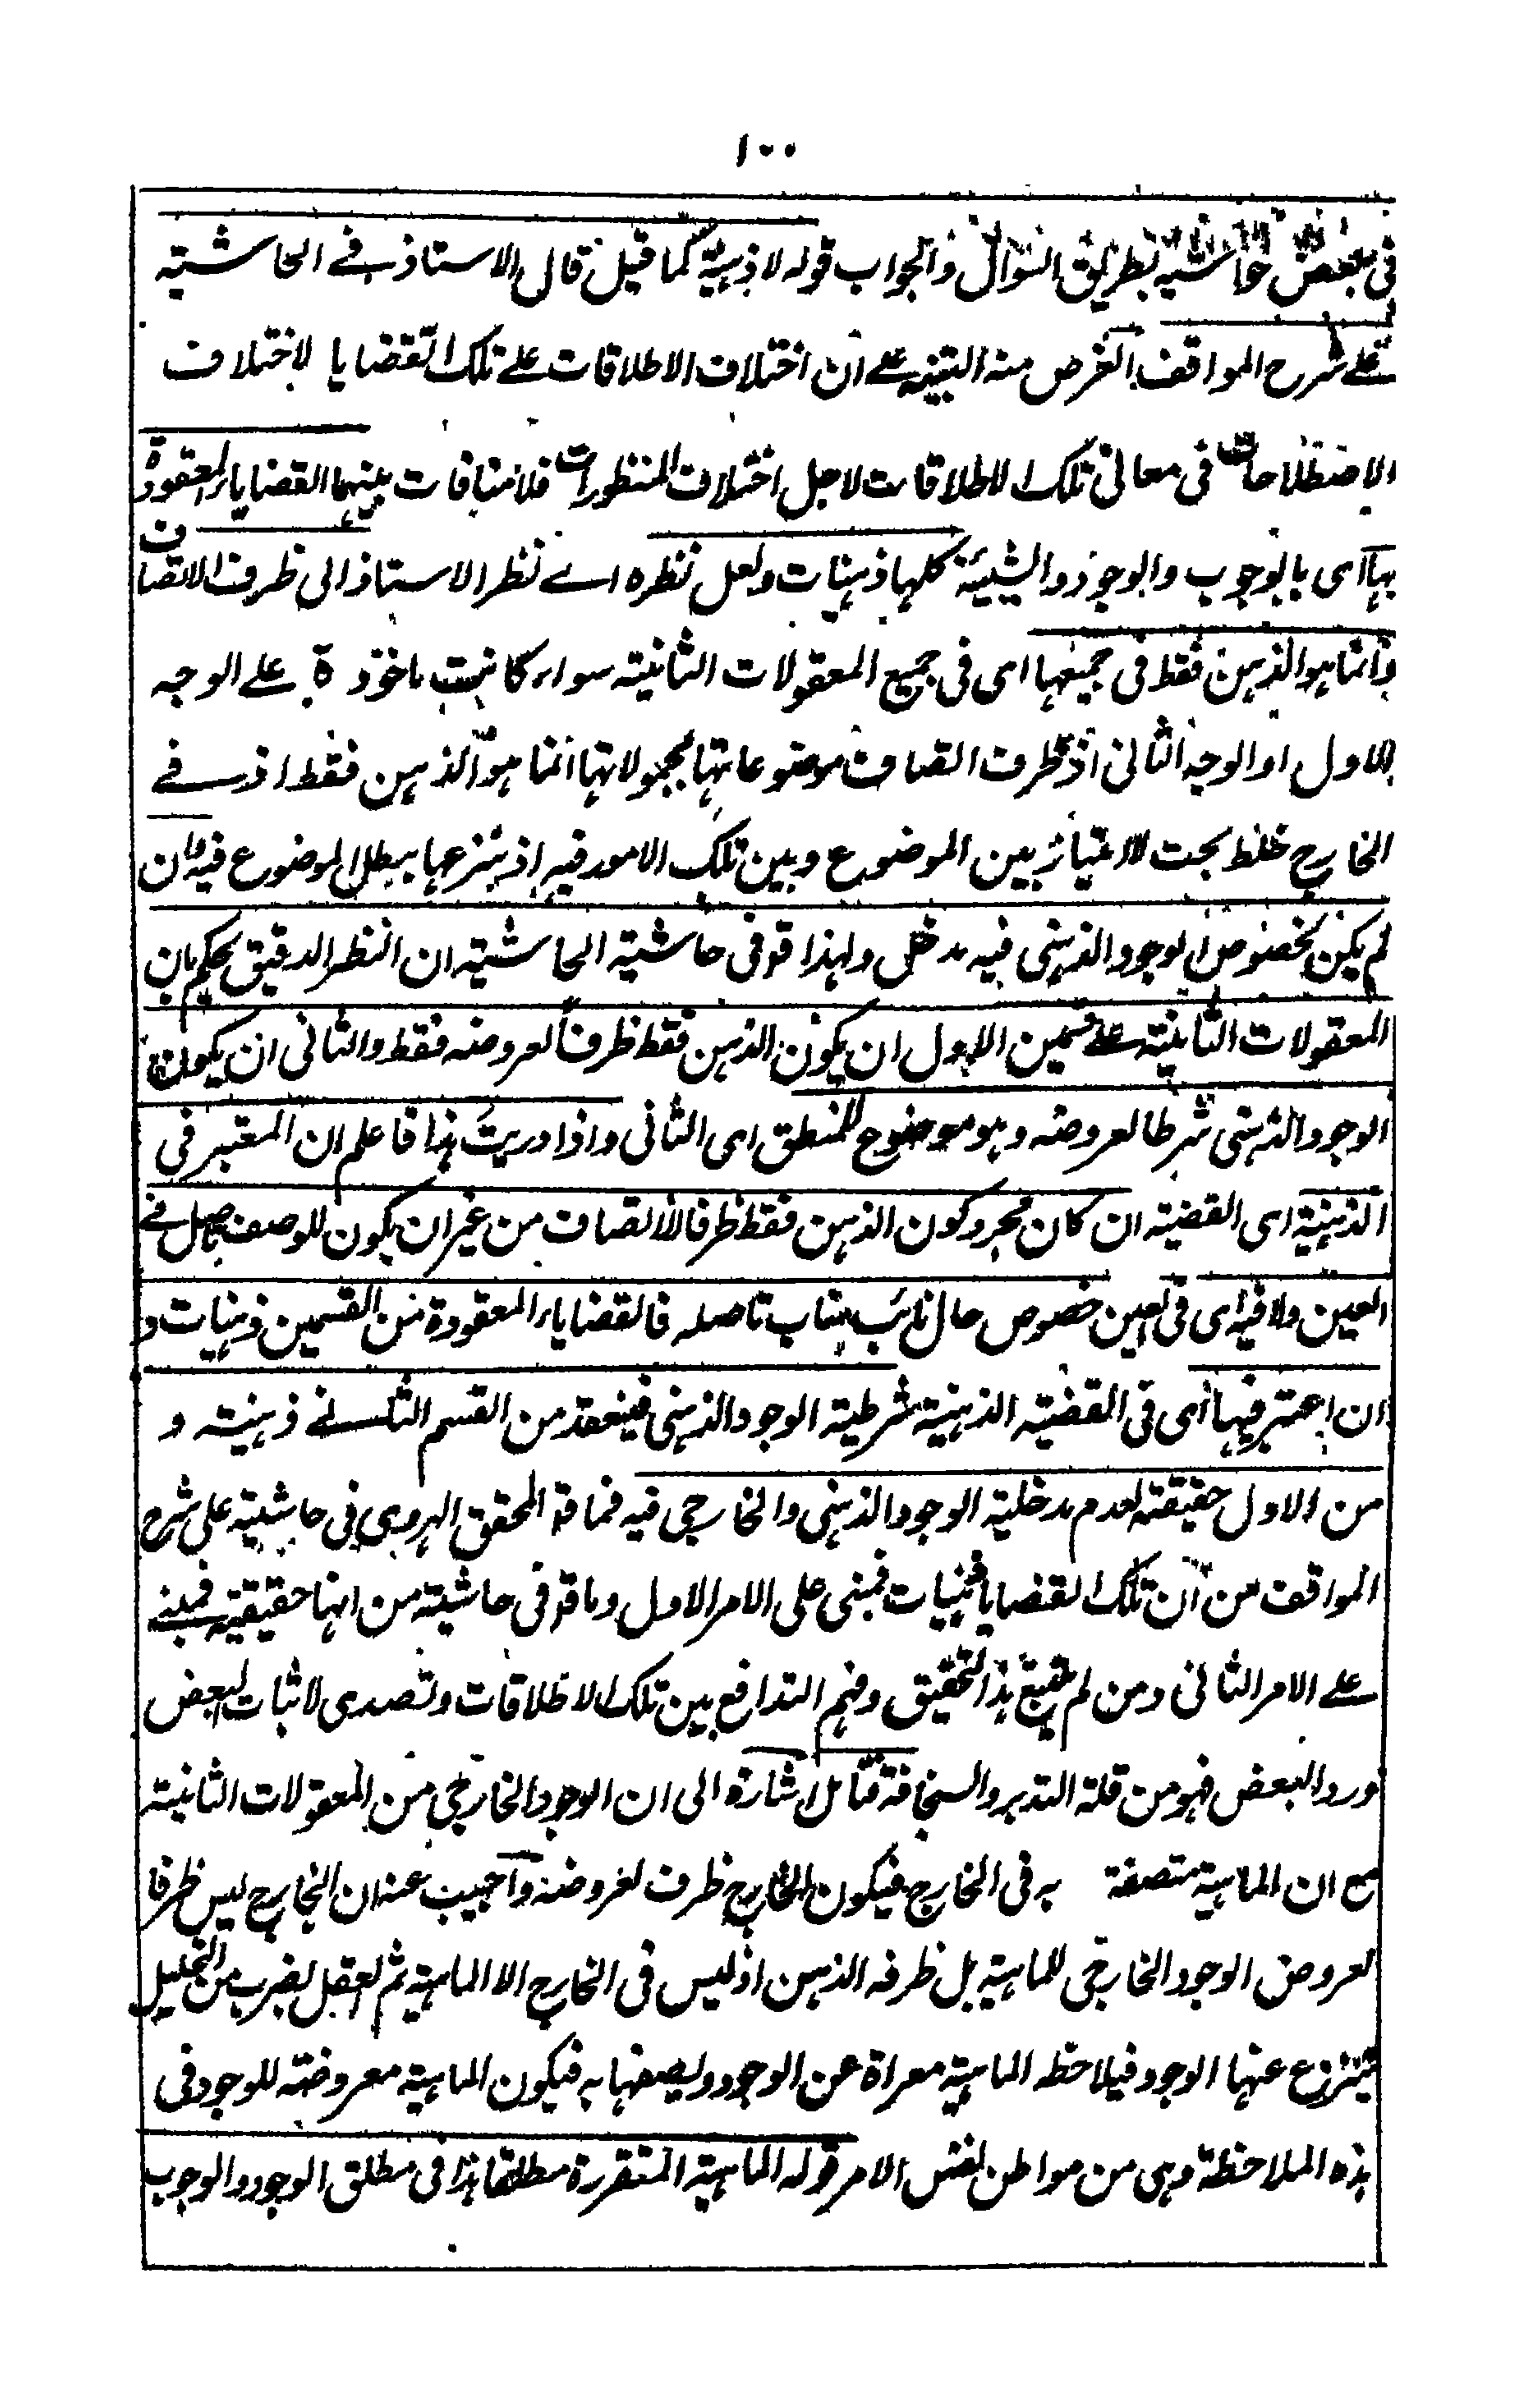 ١٠٠
فى بعض حواشيه بطريق السؤال والجواب قوله لا ذهنية كما قيل قال الاستاذ فے الحاشية
علے شرح المواقف الغرض منه التنبيه علے ان اختلاف الاطلاقات علے تلك القضايا لاختلاف
الاصطلاحات فى معانى تلك الاطلاقات لاجل اختلاف المنظورات فلا منافات بينهما القضايا المعقودة
بها اى بالوجوب والوجود والشيئية كلها ذهنيات ولعل نظره اے نظر الاستاذ الى ظرف الاتصاف
وانما هو الذهن فقط فى جميعها اى فى جميع المعقولات الثانية سواء كانت ماخوذة علے الوجه
الاول او الوجه الثانى اذ ظرف اتصاف موضوعاتها بمحمولاتها انما هو الذهن فقط اذ فے
الخارج خلط بحت لا امتياز بين الموضوع وبين تلك الامور فيه اذ بنزعها يبطل الموضوع فيه وان
لم يكن لخصوص الوجود الذهنى فيه مدخل ولهذا قو فى حاشية الحاشية ان النظر الدقيق يحكم بان
المعقولات الثانية علے قسمين الاول ان يكون الذهن فقط ظرفاً لعروضه فقط والثانى ان يكون
الوجود الذهنى شرطا لعروضه وهو موضوع المنطق اى الثانى واذا دريت هذا فاعلم ان المعتبر فى
الذهنية اى القضية ان كان مجرد كون الذهن فقط ظرفا للاتصاف من غير ان يكون للوصف تاصل فے
العين ولا فيه اى فى العين خصوص حال نائب مناب تاصله فالقضايا المعقودة من القسمين ذهنيات و
ان اعتبر فيها اى فى القضية الذهنية شرطية الوجود الذهنى فينعقد من القسم الثانے ذهنية و
من الاول حقيقية لعدم مدخلية الوجود الذهنى والخارجى فيه فما قو المحقق الهروى فى حاشية على شرح
المواقف من ان تلك القضايا ذهنيات فمبنى على الامر الاول وما قو فى حاشيته من انها حقيقية فمبنے
علے الامر الثانى ومن لم هذا التحقيق وفهم التدافع بين تلك الاطلاقات وتصدى لاثبات البعض
ورد البعض فهو من قلة التدبر والسخافة فتأمل اشارة الى ان الوجود الخارجى من المعقولات الثانية
مع ان الماهية متصفة به فى الخارج فيكون الخارج ظرف لعروضه واجيب عنه ان الخارج ليس ظرفا
لعروض الوجود الخارجى للماهية بل ظرفه الذهن اذ ليس فى الخارج الا الماهية ثم العقل بضرب من التحليل
ينتزع عنها الوجود فيلاحظ الماهية معراة عن الوجود ويصفها به فيكون الماهية معروضة للوجود فى
هذه الملاحظة وهى من مواطن نفس الامر قوله الماهية المتقررة مطلقا هذا فى مطلق الوجود والوجوب